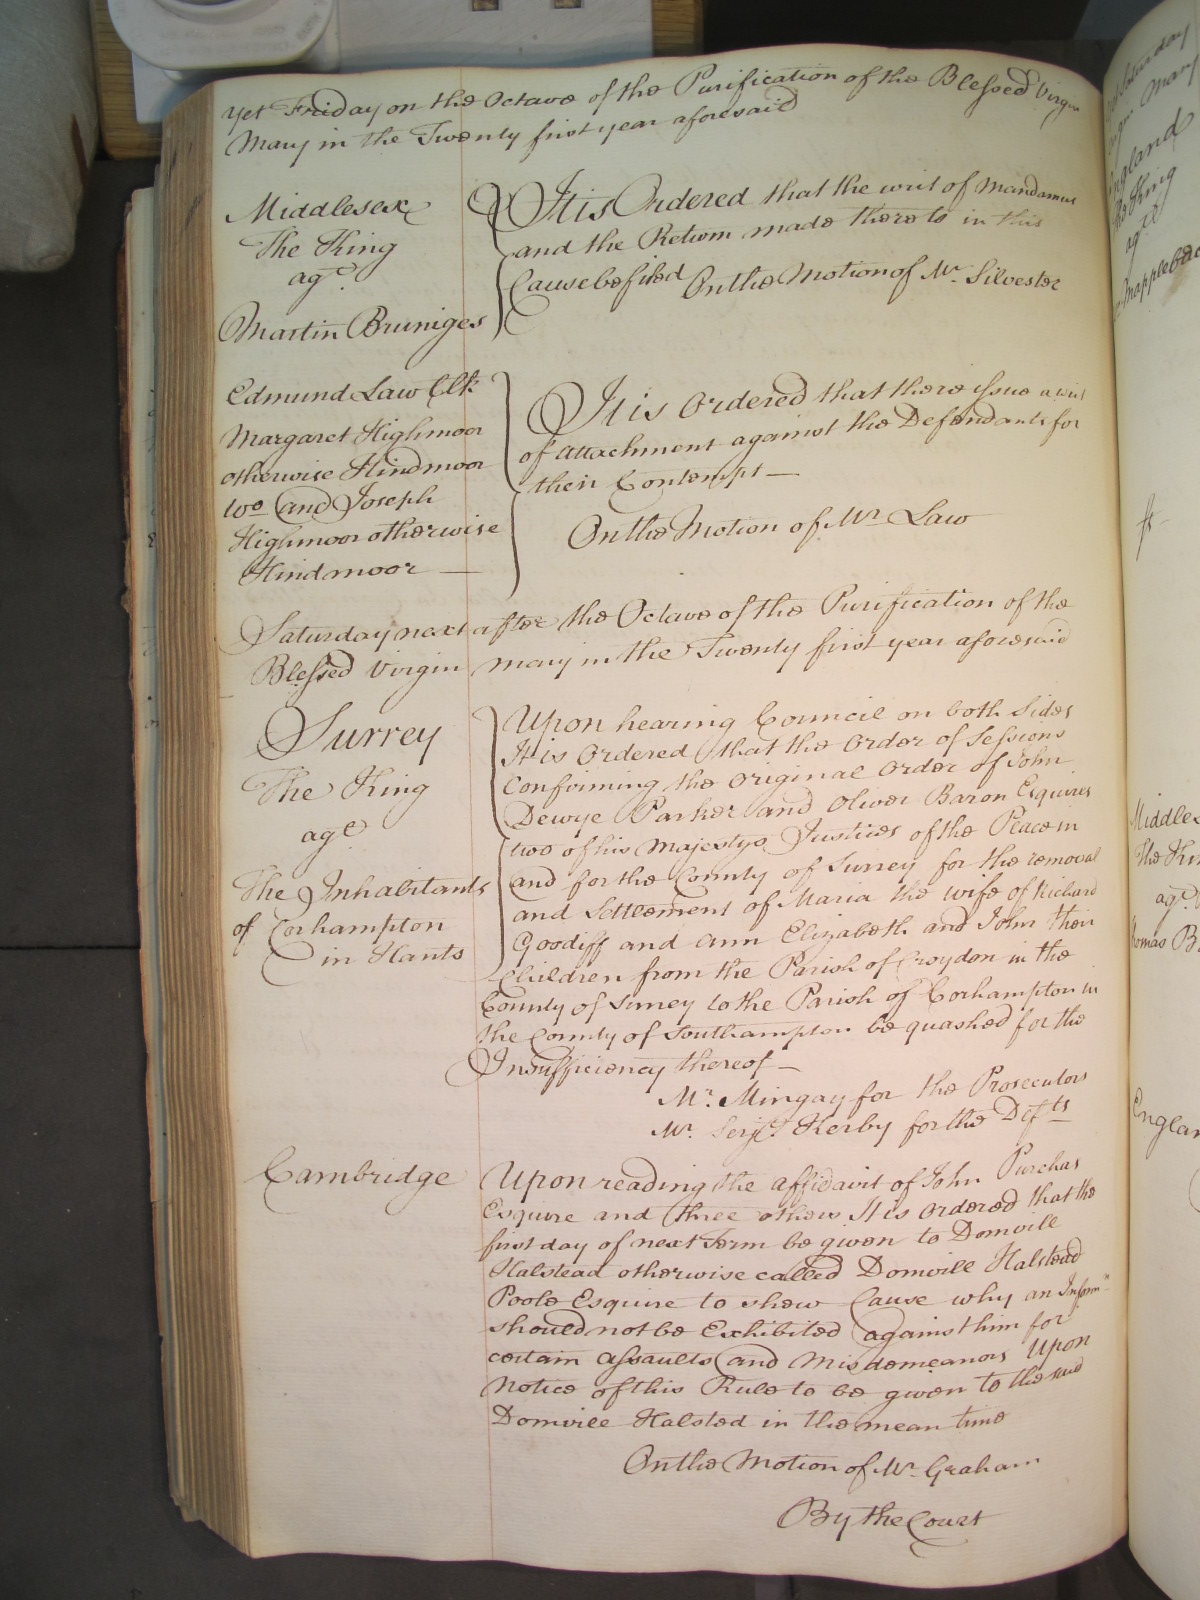 Yet Friday on the Octave of the Purification of the Blessed Virgin
Mary in the Twenty first year aforesaid
Middlesex
The King
agt.
Martin Bruniges
It is Ordered that the writ of Mandamus
and the Return made thereto in this
Cause be filed On the Motion of Mr. Silvester
Edmund Law Clk
Margaret Highmoor
otherwise Hindmoor
Wo and Joseph
Highmoor otherwise
Hindmoor —
It is Ordered that there issue a writ
of Attachment against the Defendants for
their Contempt —
On the Motion of Mr Law
Saturday next after the Octave of the Purification of the
Blessed Virgin Mary in the Twenty first year aforesaid
Surrey
The King
agt
The Inhabitants
of Corhampton
in Hants
Upon hearing Council on both Sides
It is Ordered that the Order of Sessions
Confirming the Original Order of John
Dewye Parker and Oliver Baron Esquires
two of his Majestys Justices of the Peace in
and for the County of Surrey for the removal
and Settlement of Maria the wife of Richard
Goodiff and Ann Elizabeth and John their
Children from the Parish of Croydon in the
County of Surrey to the Parish of Corhampton in
the County of Southampton be quashed for the
Insufficiency thereof —
Mr. Mingay for the Prosecutors
Mr. Serjt. Kerby for the Defts
Cambridge
Upon reading the affidavit of John Purchas
Esquire and three others It is Ordered that the
first day of next Term be given to Domvill
Halstead otherwise called Domvill Halstead
Poole Esquire to shew Cause why an Inform̅n
should not be Exhibited against him for
certain Assaults and Misdemeanors Upon
Notice of this Rule to be given to the said
Domvill Halsted in the mean time
On the Motion of Mr. Graham
By the Court
England
The King
agt
Middles
The Kin
agt.
Englan